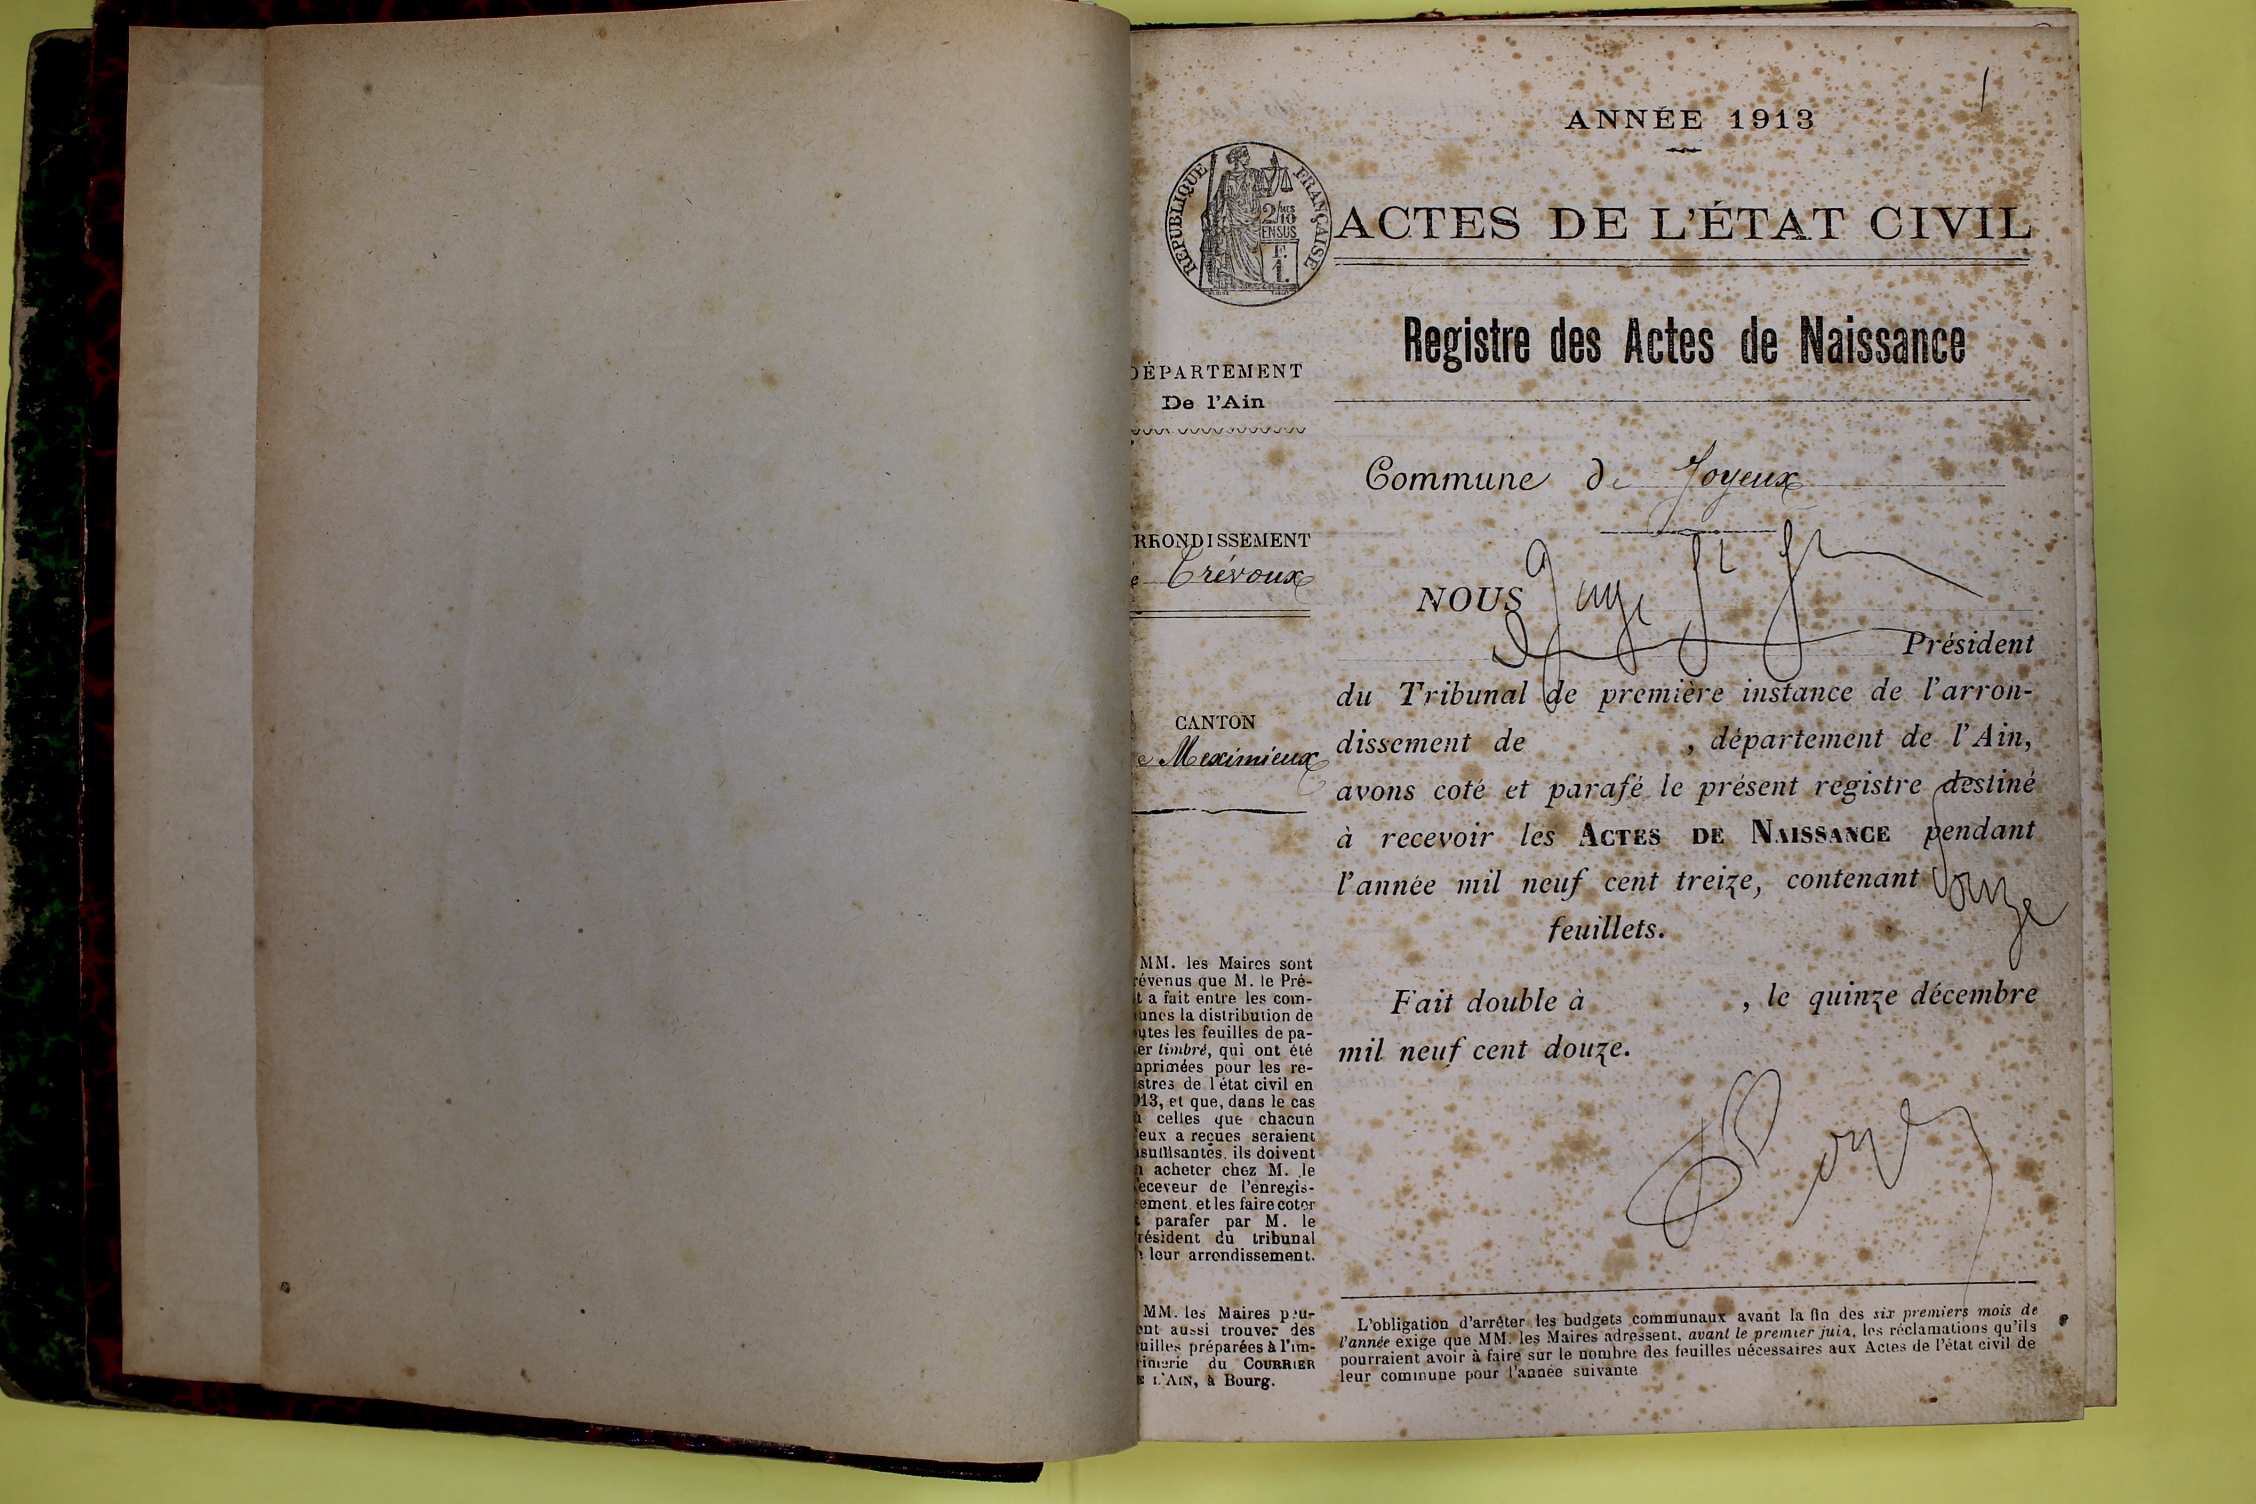 1
ANNÉE 1913
RÉPUBLIQUE FRANÇAISE
2/10 MES
EN SUS
F.
1.
ACTES DE L'ÉTAT CIVIL
Registre des Actes de Naissance
DÉPARTEMENT
De l'Ain
RRONDISSEMENT
e Trévoux
CANTON
e Meximieux
MM. les Maires sont
révenus que M. le Pré-
t a fait entre les com-
unes la distribution de
utes les feuilles de pa-
er timbré, qui ont été
nprimées pour les re-
stres de l'état civil en
913, et que, dans le cas
ù celles que chacun
'eux a reçues seraient
nsuffisantes, ils doivent
n acheter chez M. le
eceveur de l'enregis-
rement, et les faire coter
t parafer par M. le
résident du tribunal
e leur arrondissement.
MM. les Maires peu-
ent aussi trouver des
uilles préparées à l'im-
rimerie du COURRIER
E L'AIN, à Bourg.
Commune de Joyeux
NOUS
Président
du Tribunal de première instance de l'arron-
dissement de , département de l'Ain,
avons coté et parafé le présent registre destiné
à recevoir les ACTES DE NAISSANCE pendant
l'année mil neuf cent treize, contenant
feuillets.
Fait double à , le quinze décembre
mil neuf cent douze.
L'obligation d'arrêter les budgets communaux avant la fin des six premiers mois de
l'année exige que MM. les Maires adressent, avant le premier juin, les réclamations qu'ils
pourraient avoir à faire sur le nombre des feuilles nécessaires aux Actes de l'état civil de
leur commune pour l'année suivante